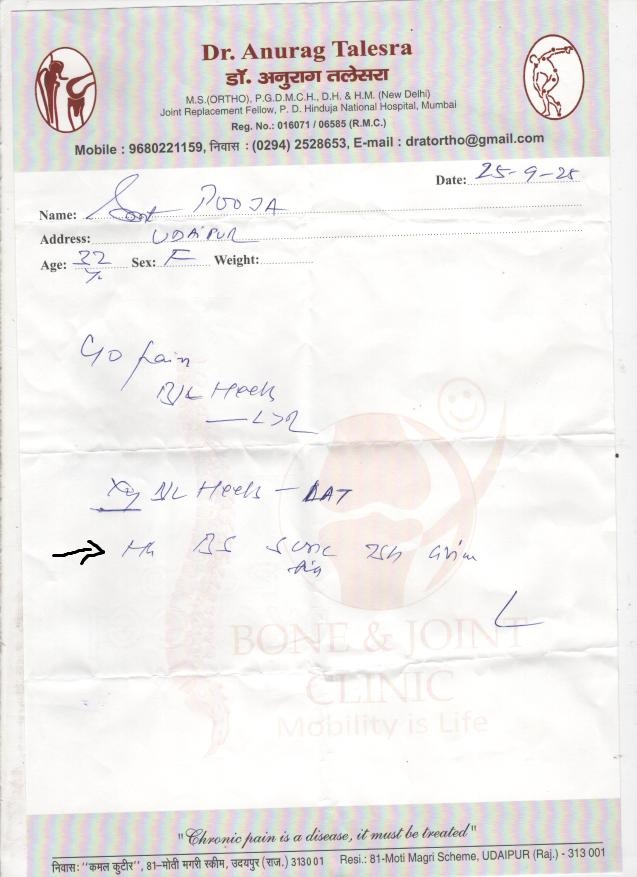 Dr. Anurag Talesra
डॉ. अनुराग तलेसरा
M.S.(ORTHO), P.G.D.M.C.H., D.H. & H.M. (New Delhi)
Joint Replacement Fellow, P. D. Hinduja National Hospital, Mumbai
Reg. No.: 016071 / 06585 (R.M.C.)
Mobile : 9680221159, निवास : (0294) 2528653, E-mail : dratortho@gmail.com
Date: 25-9-25
Name: POOJA
Address: UDAIPUR
Age: 32 Sex: F Weight:
C/o pain
B/L Heels
L>R
Xray B/L Heels - LAT
BONE & JOINT
CLINIC
Mobility is Life
"Chronic pain is a disease, it must be treated"
निवास: "कमल कुटीर", 81-मोती मगरी स्कीम, उदयपुर (राज.) 313001 Resi.: 81-Moti Magri Scheme, UDAIPUR (Raj.) - 313 001